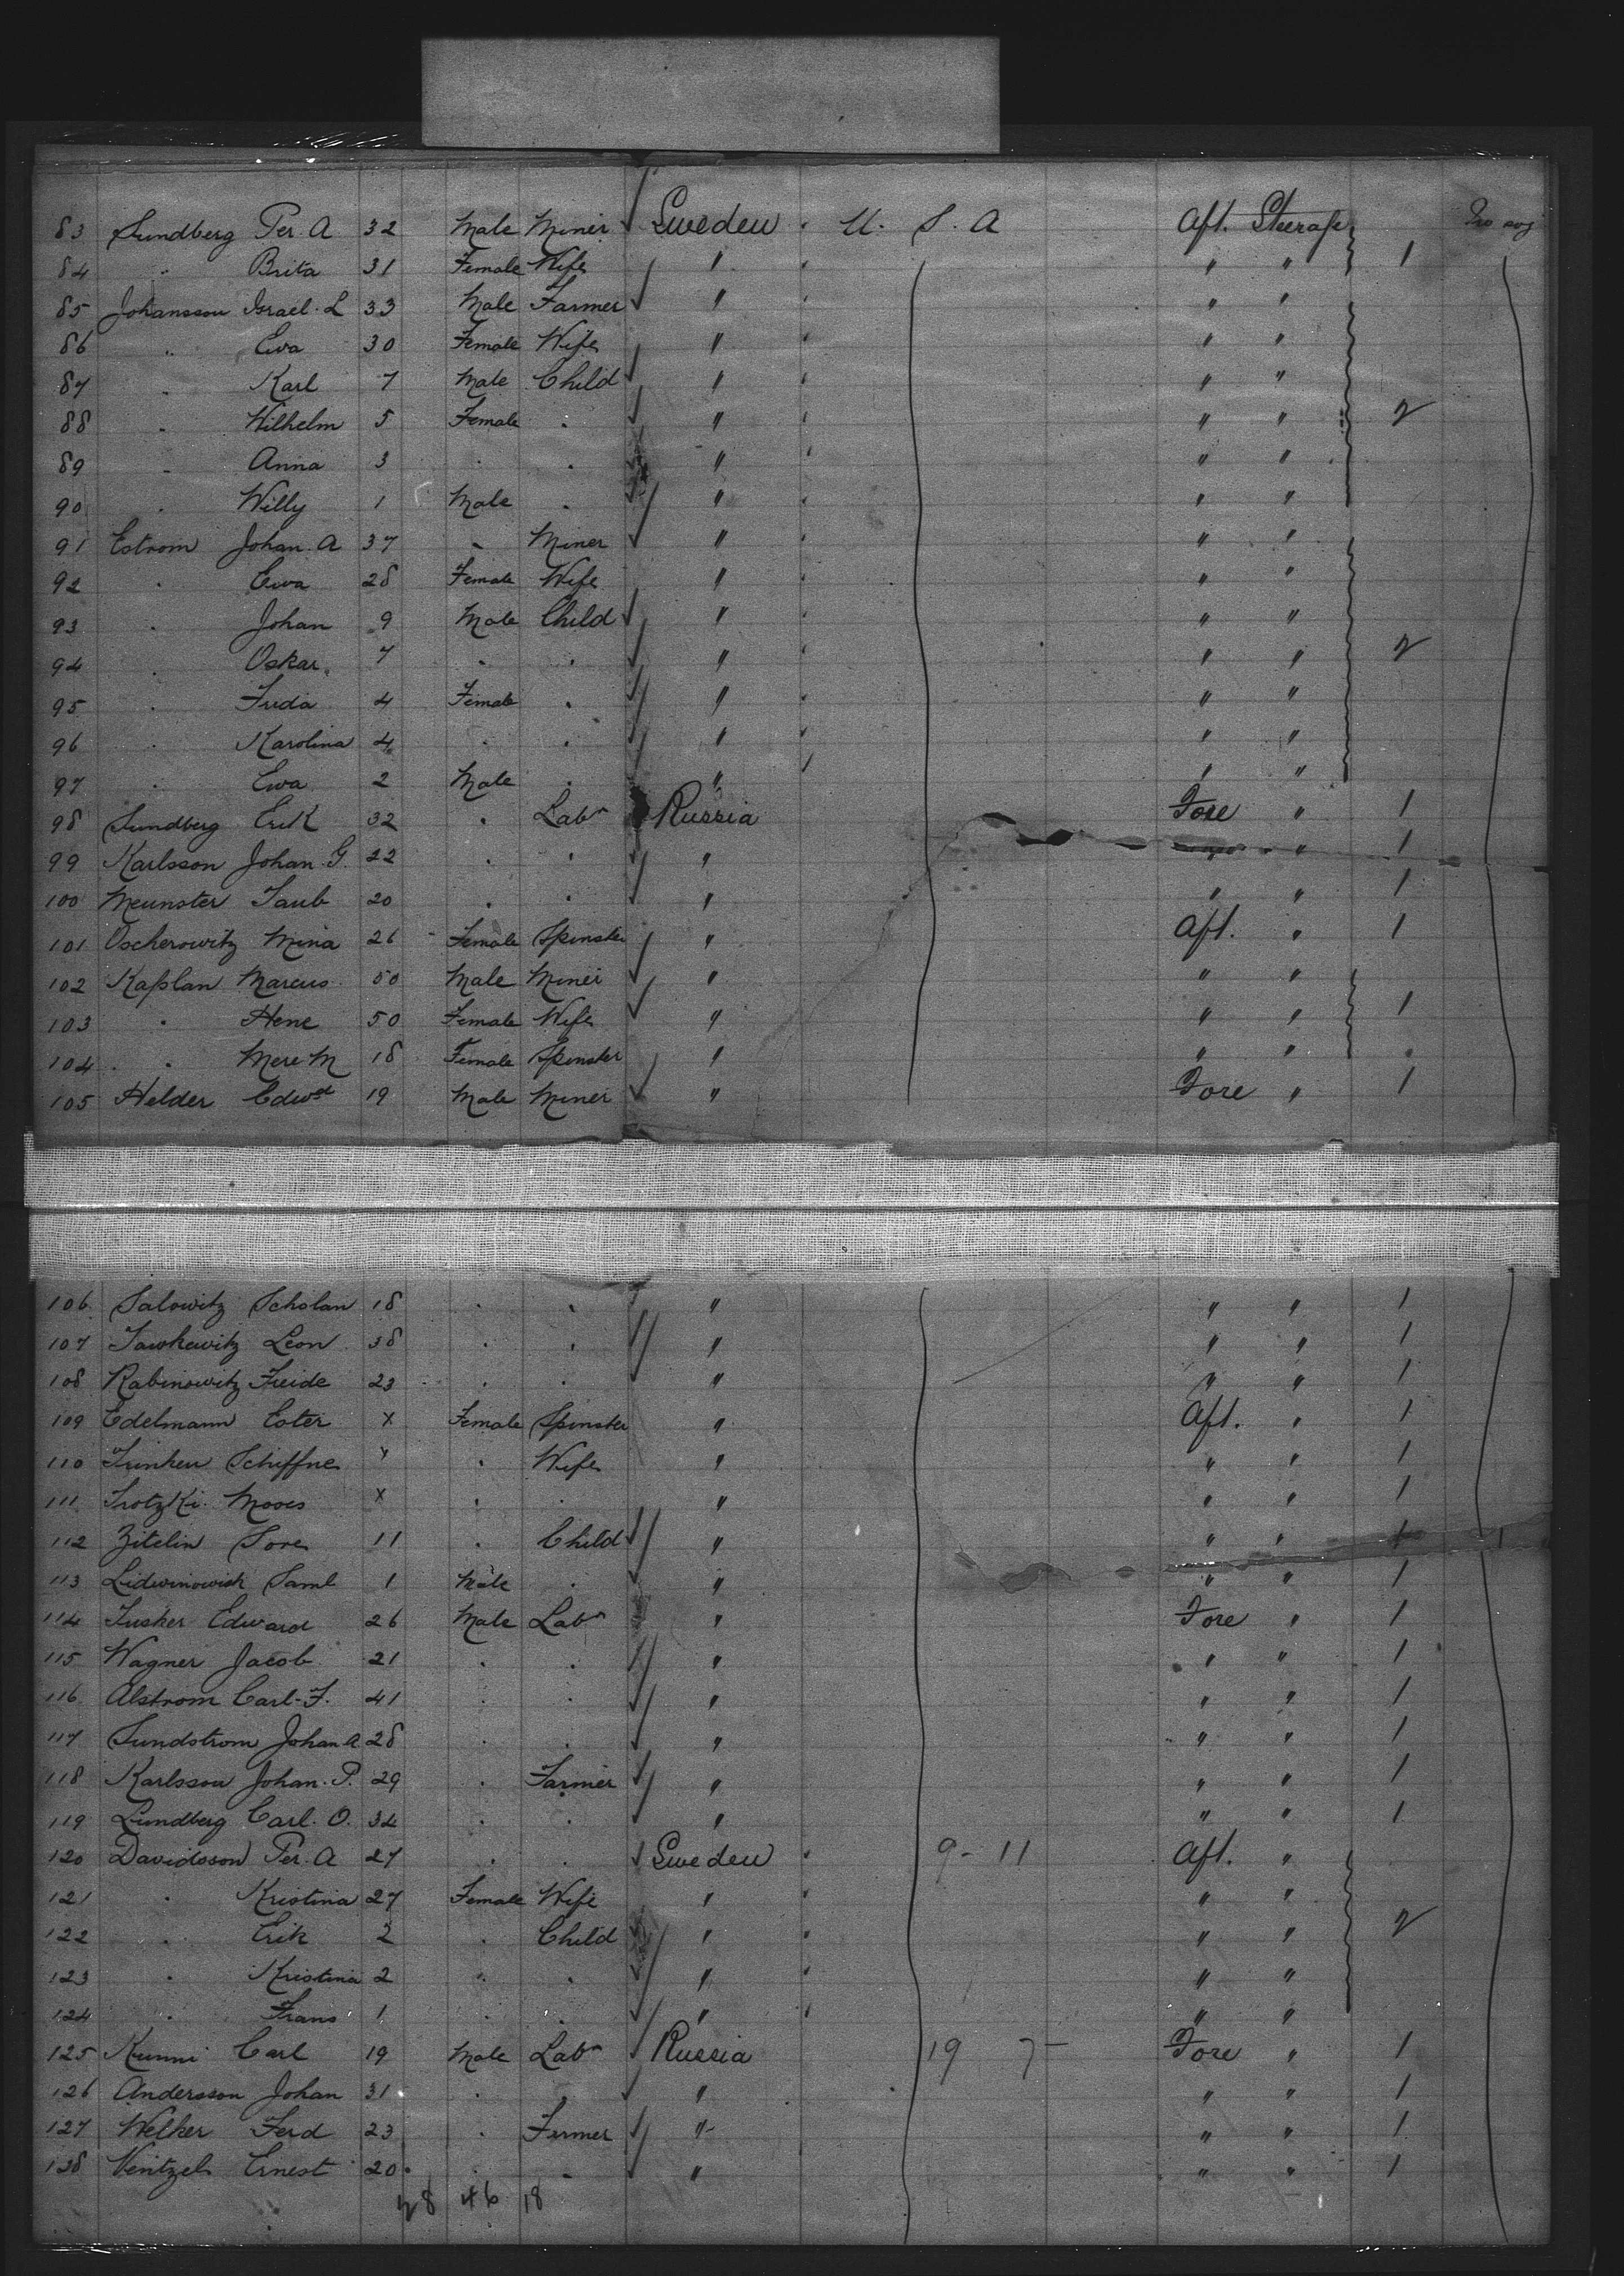 83 Sundberg Per. A 32 Male Miner Sweden U. S. A Aft. Steerage
84 " Brita 31 Female Wife " " " 1
85 Johansson Israel. L 33 Male Farmer " " "
86 " Ewa 30 Female Wife " " "
87 " Karl 7 Male Child " " "
88 " Wilhelm 5 Female " " " " 2
89 " Anna 3 " " " " "
90 " Willy 1 Male " " " "
91 Estrom Johan. A 37 " Miner " " "
92 " Ewa 28 Female Wife " " "
93 " Johan 9 Male Child " " "
94 " Oskar 7 " " " " " 2
95 " Frida 4 Female " " " "
96 " Karolina 4 " " " " "
97 " Ewa 2 Male " " " "
98 Sundberg Erik 32 " Labr Russia Fore " 1
99 Karlsson Johan. G. 22 " " " " 1
100 Meunster Taub 20 " " " " " 1
101 Oscherowitz Mina 26 Female Spinster " Aft. " 1
102 Kaplan Marcus 50 Male Miner " " "
103 " Hene 50 Female Wife " " " 1
104 " Mere M 18 Female Spinster " " "
105 Helder Edwd 19 Male Miner " Fore " 1
106 Salowitz Scholan 18 " " " " " 1
107 Sawkewitz Leon 38 " " " " " 1
108 Rabinowitz Freide 23 " " " " " 1
109 Edelmann Ester X Female Spinster " Aft. " 1
110 Trinken Schiffne X " Wife " " " 1
111 Trotzki Mooes X " " " " " 1
112 Zitelin Sore 11 " Child " " " 1
113 Lidwinowish Saml 1 Male " " " " 1
114 Tusker Edward 26 Male Labr " Fore " 1
115 Wagner Jacob 21 " " " " " 1
116 Alstrom Carl. F. 41 " " " " " 1
117 Sundstrom Johan A 28 " " " " " 1
118 Karlsson Johan. P. 29 " Farmer " " " 1
119 Lundberg Carl. O. 34 " " " " " 1
120 Davidsson Per. A 27 " " Sweden 9 - 11 Aft. "
121 " Kristina 27 Female Wife " " "
122 " Erik 2 " Child " " " 2
123 " Kristina 2 " " " " "
124 " Frans 1 " " " " "
125 Kunni Carl 19 Male Labr Russia 19 7 - Fore " 1
126 Andersson Johan 31 " " " " " 1
127 Welker Ferd 23 " Fermer " " " 1
128 Wentzel Ernest 20 " " " " " 1
28 46 18